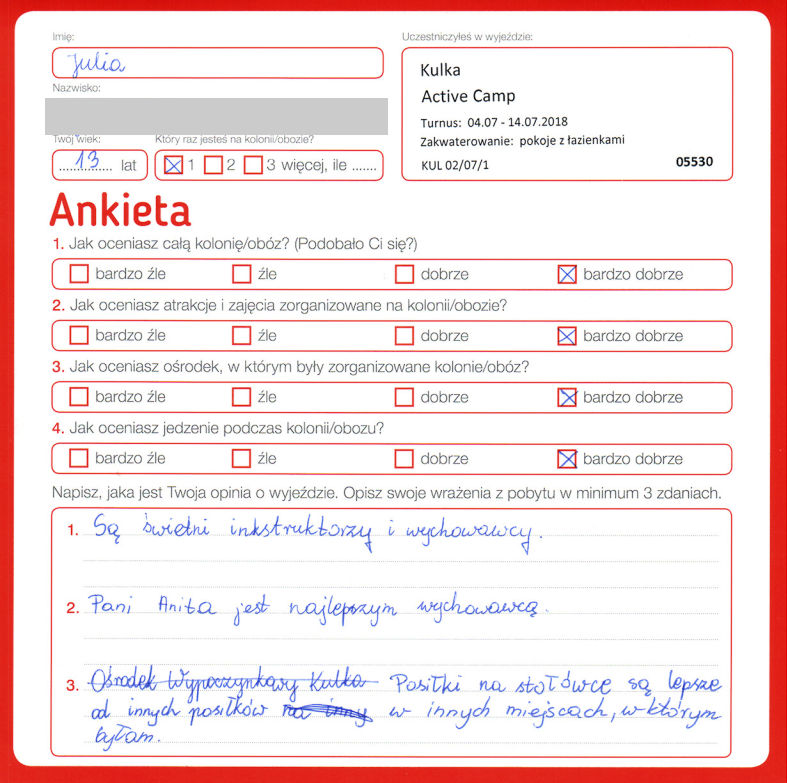 Imię:
Julia
Nazwisko:
Twój wiek:
13 lat
Który raz jesteś na kolonii/obozie?
1 2 3 więcej, ile .......
Uczestniczyłeś w wyjeździe:
Kulka
Active Camp
Turnus: 04.07 - 14.07.2018
Zakwaterowanie: pokoje z łazienkami
KUL 02/07/1 05530
Ankieta
1. Jak oceniasz całą kolonię/obóz? (Podobało Ci się?)
bardzo źle źle dobrze bardzo dobrze
2. Jak oceniasz atrakcje i zajęcia zorganizowane na kolonii/obozie?
bardzo źle źle dobrze bardzo dobrze
3. Jak oceniasz ośrodek, w którym były zorganizowane kolonie/obóz?
bardzo źle źle dobrze bardzo dobrze
4. Jak oceniasz jedzenie podczas kolonii/obozu?
bardzo źle źle dobrze bardzo dobrze
Napisz, jaka jest Twoja opinia o wyjeździe. Opisz swoje wrażenia z pobytu w minimum 3 zdaniach.
1. Są świetni inkstruktorzy i wychowawcy.
2. Pani Anita jest najlepszym wychowawcą.
3. Ośrodek Wypoczynkowy Kulka Posiłki na stołówce są lepsze
od innych posiłków na inny w innych miejscach, w którym
byłam.